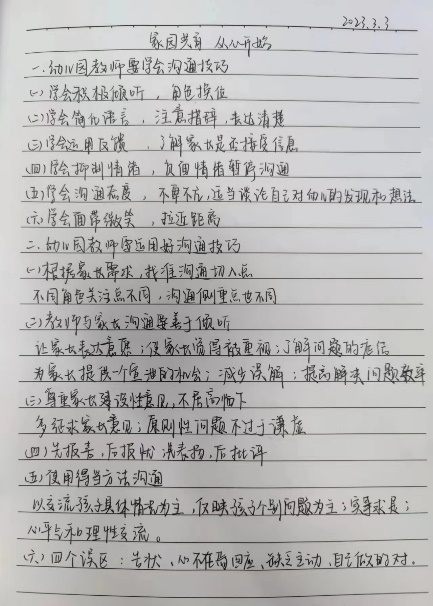 2023.3.3
家园共育 从心开始
一.幼儿园教师要学会沟通技巧
(一)学会积极倾听，角色换位
(二)学会简化语言，注意措辞，表达清楚
(三)学会运用反馈，了解家长是否接受信息
(四)学会抑制情绪，负面情绪暂停沟通
(五)学会沟通态度，不卑不亢，适当谈论自己对幼儿的发现和想法
(六)学会面带微笑，拉近距离
二.幼儿园教师要运用好沟通技巧
(一)根据家长需求，找准沟通切入点
不同角色关注点不同，沟通侧重点也不同
(二)教师与家长沟通要善于倾听
让家长表达意愿；使家长觉得被重视；了解问题的症结
为家长提供一个宣泄的机会；减少误解；提高解决问题效率
(三)尊重家长建设性意见，不居高临下
多征求家长意见；原则性问题不过于谦虚
(四)先报喜，后报忧 先表扬，后批评
(五)使用得当方法沟通
以交流孩子具体情况为主，反映孩子个别问题为主；实事求是；
心平气和理性交流。
(六)四个误区：告状、心不在焉回应、缺乏主动、自己做的对。